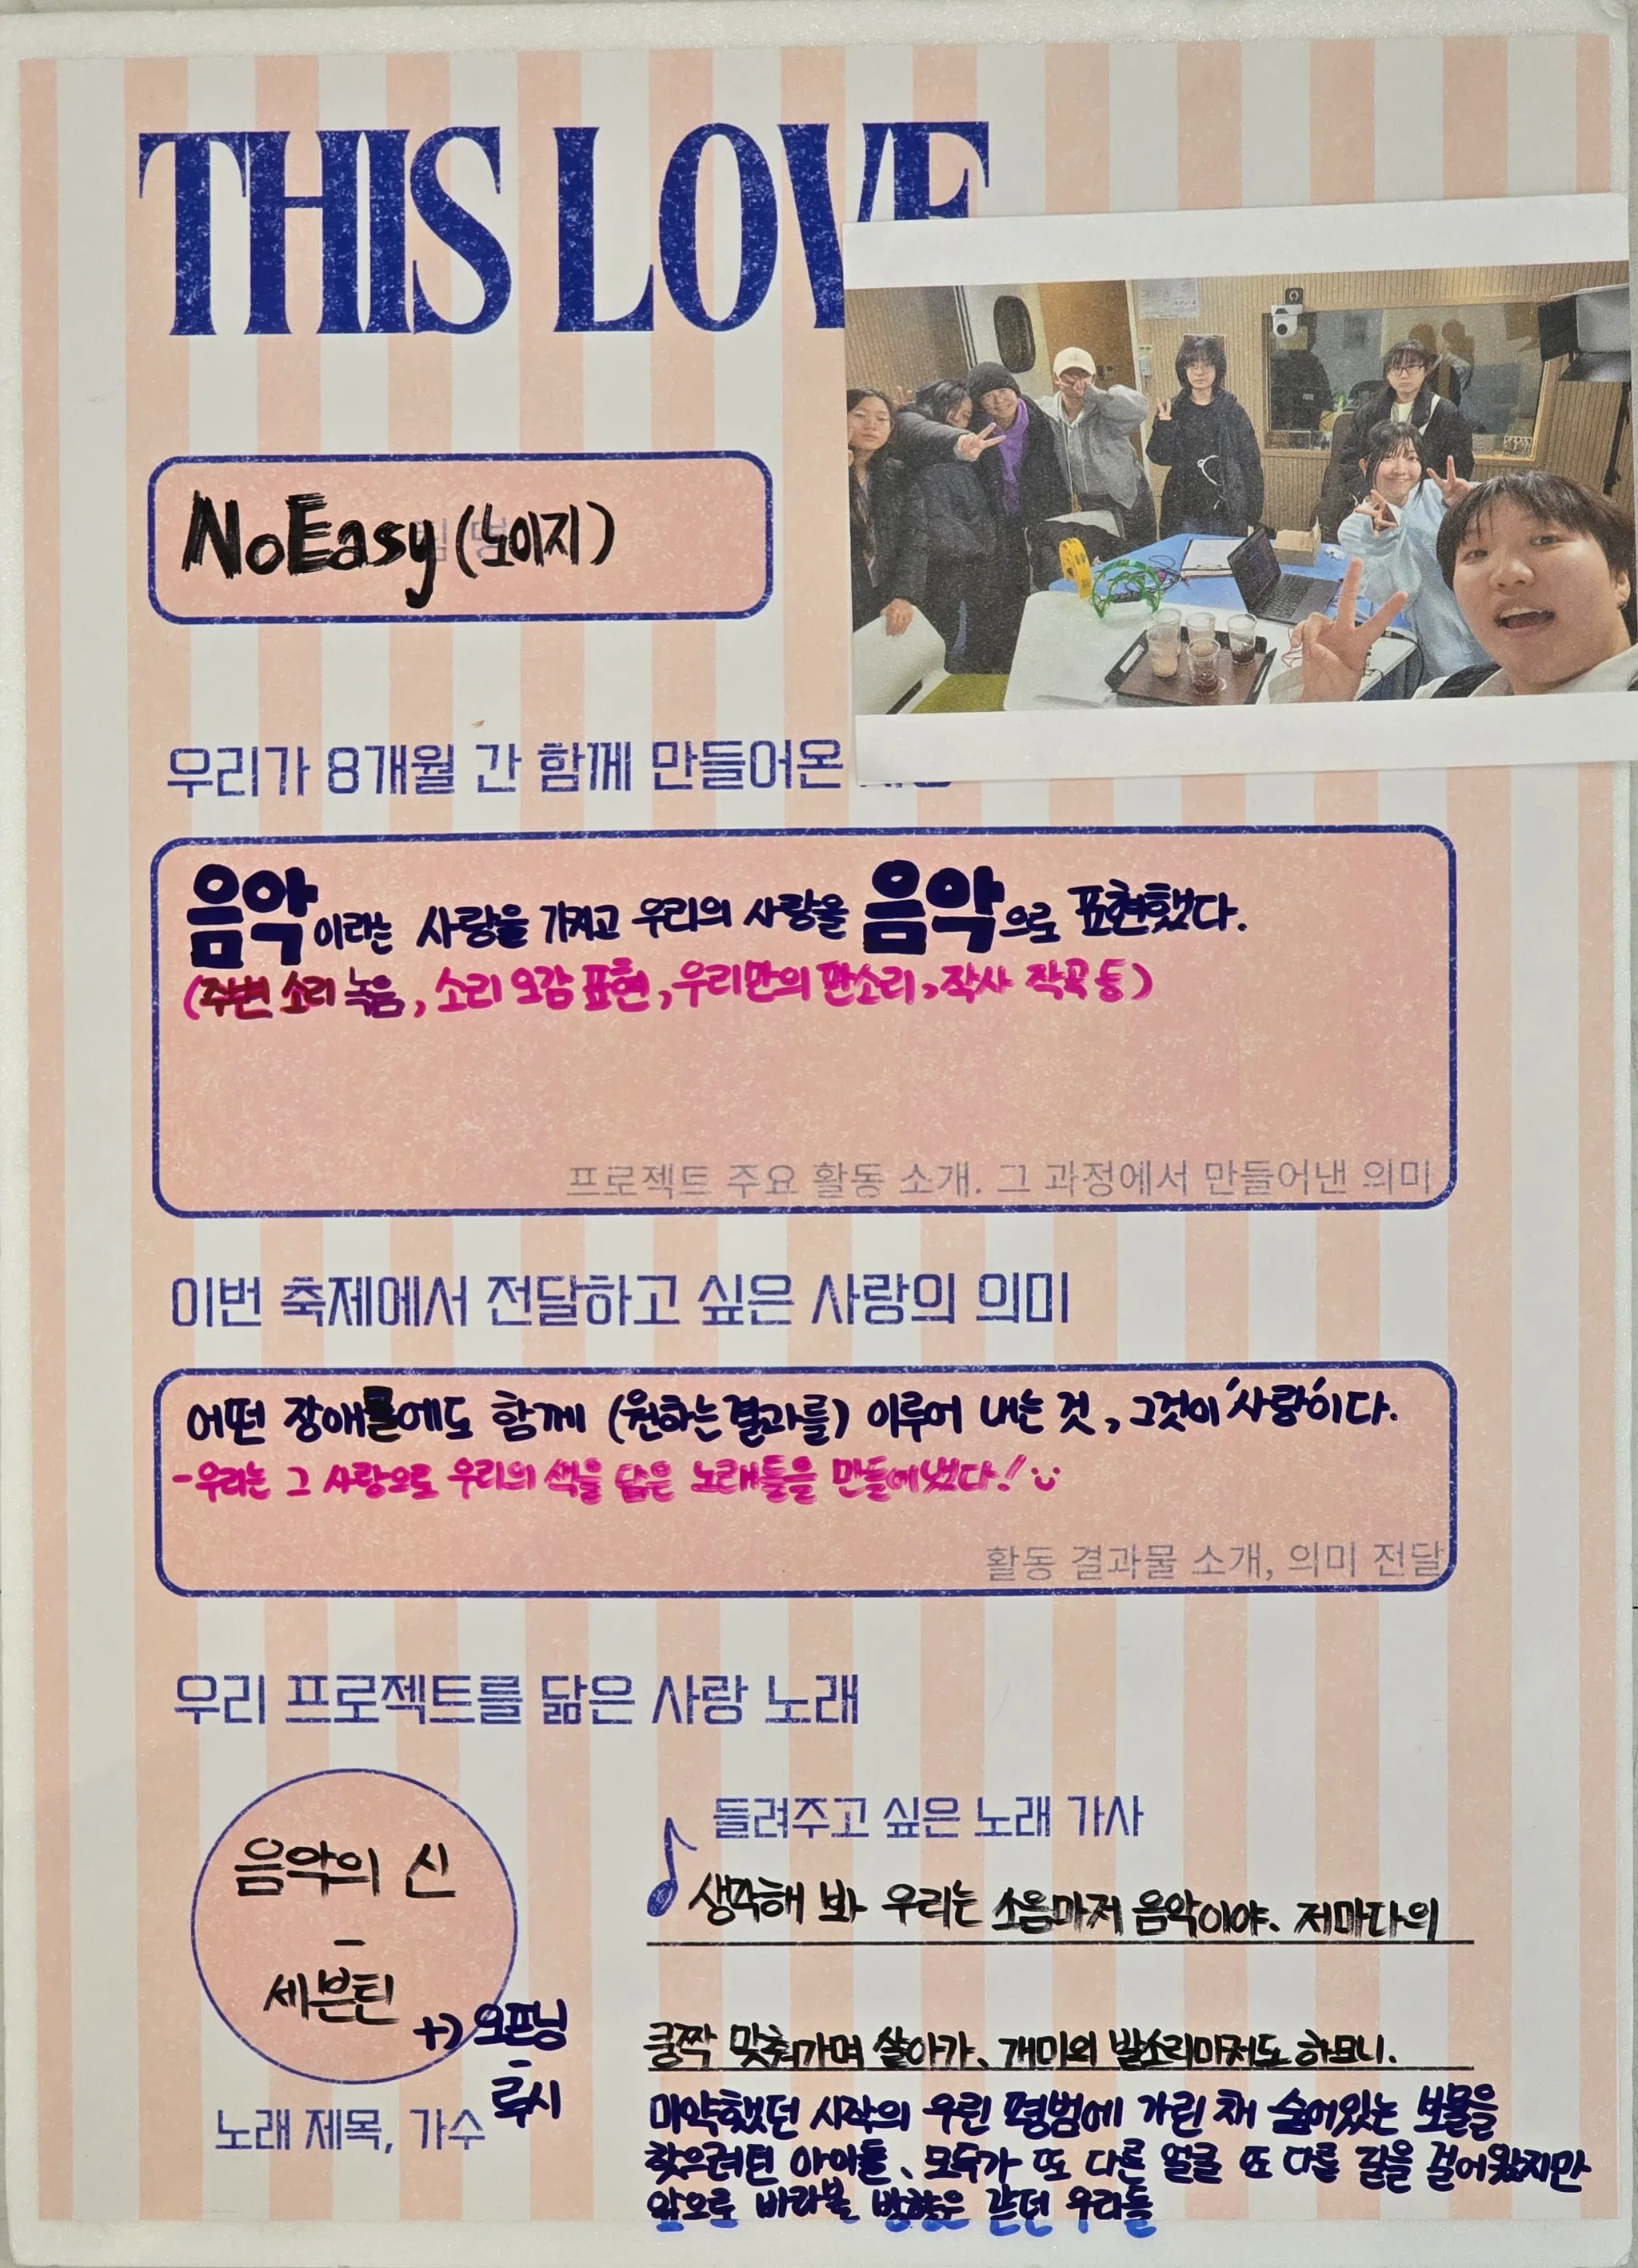 THIS LOVE
NoEasy (노이지)
우리가 8개월 간 함께 만들어온
음악이라는 사랑을 가지고 우리의 사랑을 음악으로 표현했다.
(주변 소리 녹음, 소리 오감 표현, 우리만의 판소리, 작사 작곡 등)
프로젝트 주요 활동 소개. 그 과정에서 만들어낸 의미
이번 축제에서 전달하고 싶은 사랑의 의미
어떤 장애물에도 함께 (원하는 결과를) 이루어 내는 것, 그것이 '사랑'이다.
-우리는 그 사랑으로 우리의 색을 담은 노래들을 만들어냈다!
활동 결과물 소개, 의미 전달
우리 프로젝트를 닮은 사랑 노래
음악의 신
-
세븐틴
+) 오프닝
-
루시
노래 제목, 가수
들려주고 싶은 노래 가사
생각해 봐 우리는 소음마저 음악이야. 저마다의
쿵짝 맞춰가며 살아가. 개미의 발소리마저도 하모니.
미약했던 시작의 우린 평범에 가린 채 숨어있는 보물을
찾으려던 아이들. 모두가 또 다른 얼굴 또 다른 길을 걸어왔지만
앞으로 바라볼 방향은 같던 우리들